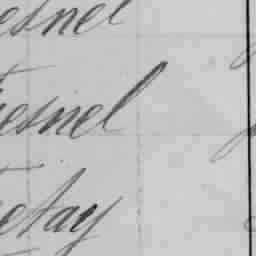 esnel
esnel
etay